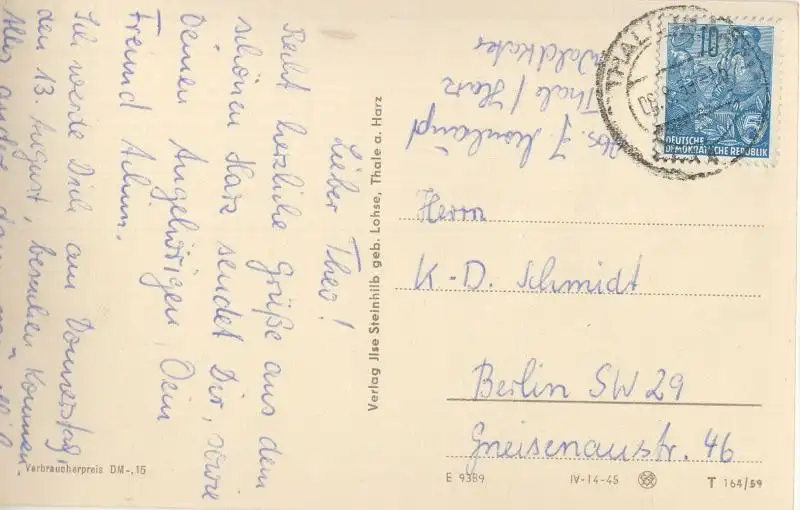 Lieber Theo!
Recht herzliche Grüße aus dem
schönen Harz sendet Dir, sowie
Deinen Angehörigen Dein
Freund Achim.
Ich werde Dich am Donnerstag,
den 13. August, besuchen kommen.
Alles andere dann
Verbraucherpreis DM -,15
Verlag Jlse Steinhilb geb. Lohse, Thale a. Harz
Abs. J.
Thale / Harz
Waldkater
THALE
10
5
DEUTSCHE
DEMOKRATISCHE REPUBLIK
Herrn
K.-D. Schmidt
Berlin SW 29
Gneisenaustr. 46
E 9389
IV-14-45
T 164/59